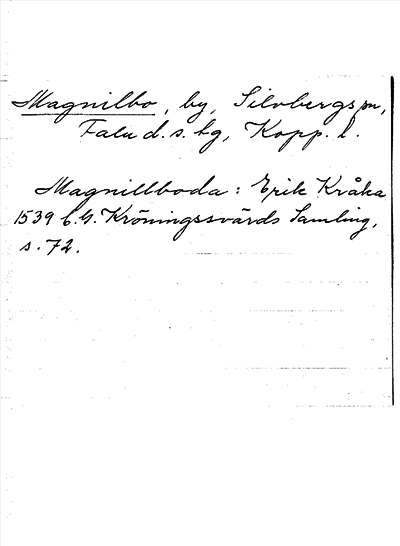 Magnilbo, by, Silvbergs sn,
Falu d. s. tg, Kopp. l.
Magnillboda: Erik Kråka
1539 C. G. Kröningssvärds Samling,
s. 72.